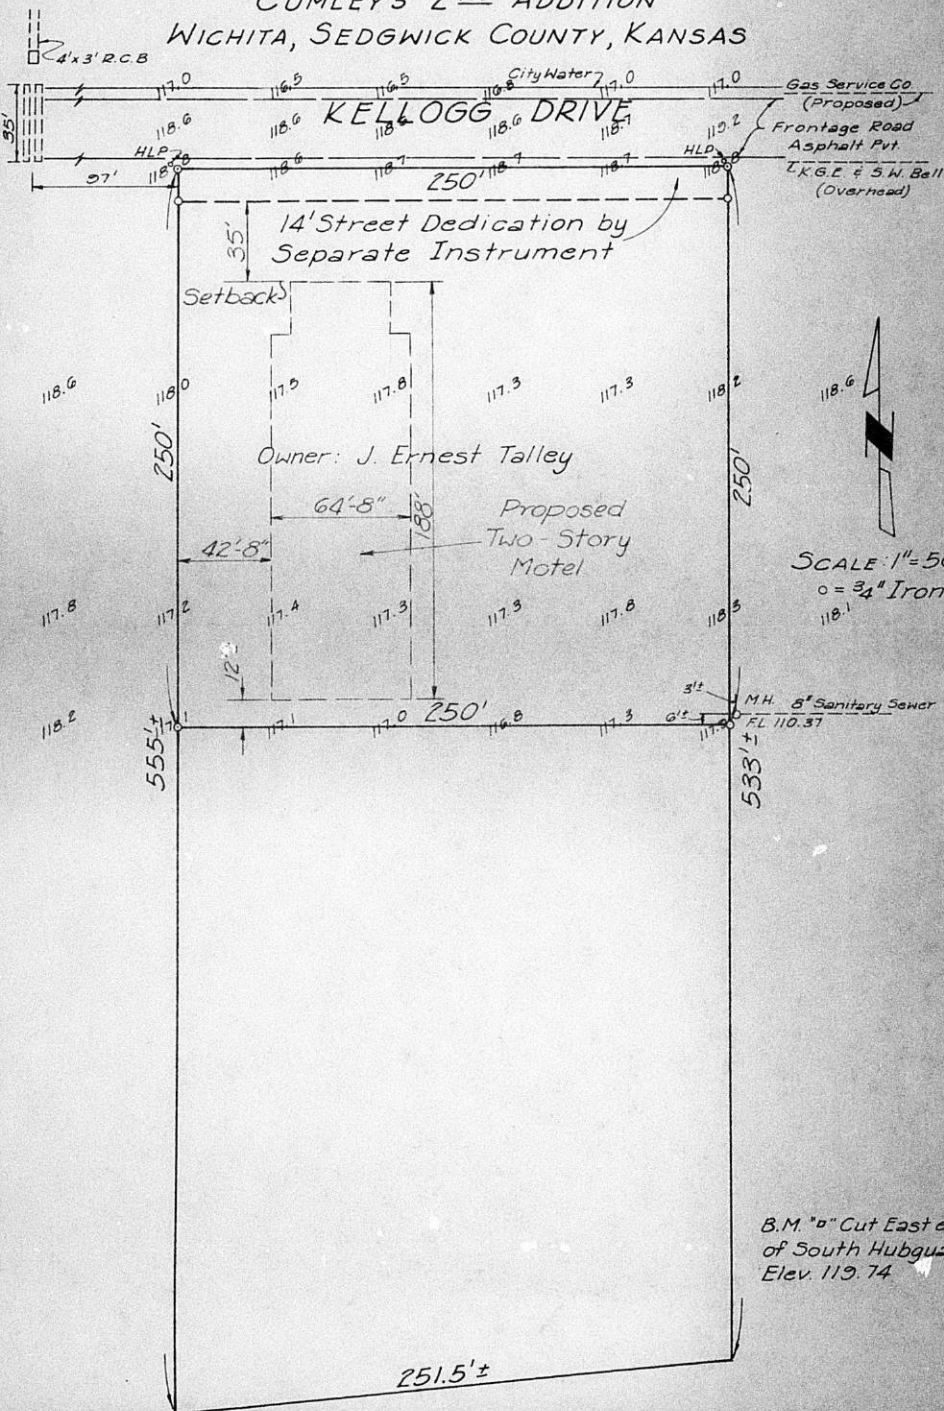 CUMLEY'S 2— ADDITION
WICHITA, SEDGWICK COUNTY, KANSAS
4'x3' R.C.B
City Water
117.0 116.5 116.5 116.8 117.0 117.0
Gas Service Co
(Proposed)
KELLOGG DRIVE
35'
118.6 118.6 118.6 118.6 118.7 119.2
Frontage Road
Asphalt Pvt.
HLP
HLP
118.8 118.6 118.7 118.7 118.7 118.8
K.G.E. & S.W. Bell
(Overhead)
97'
250'
14' Street Dedication by
Separate Instrument
35'
Setback
118.6 118.0 117.5 117.8 117.3 117.3 118.2 118.6
250'
250'
Owner: J. Ernest Talley
64'-8"
188'
Proposed
Two-Story
Motel
42'-8"
SCALE: 1"=5
o = 3/4" Iron
117.8 117.2 117.4 117.3 117.3 117.8 118.3 118.1
12'
3'±
M.H. 8" Sanitary Sewer
6'±
F.L. 110.37
250'
118.2 117.1 117.1 117.0 116.8 117.3 117.9
555'±
533'±
B.M. "□" Cut East
of South Hubgua
Elev. 119.74
251.5'±